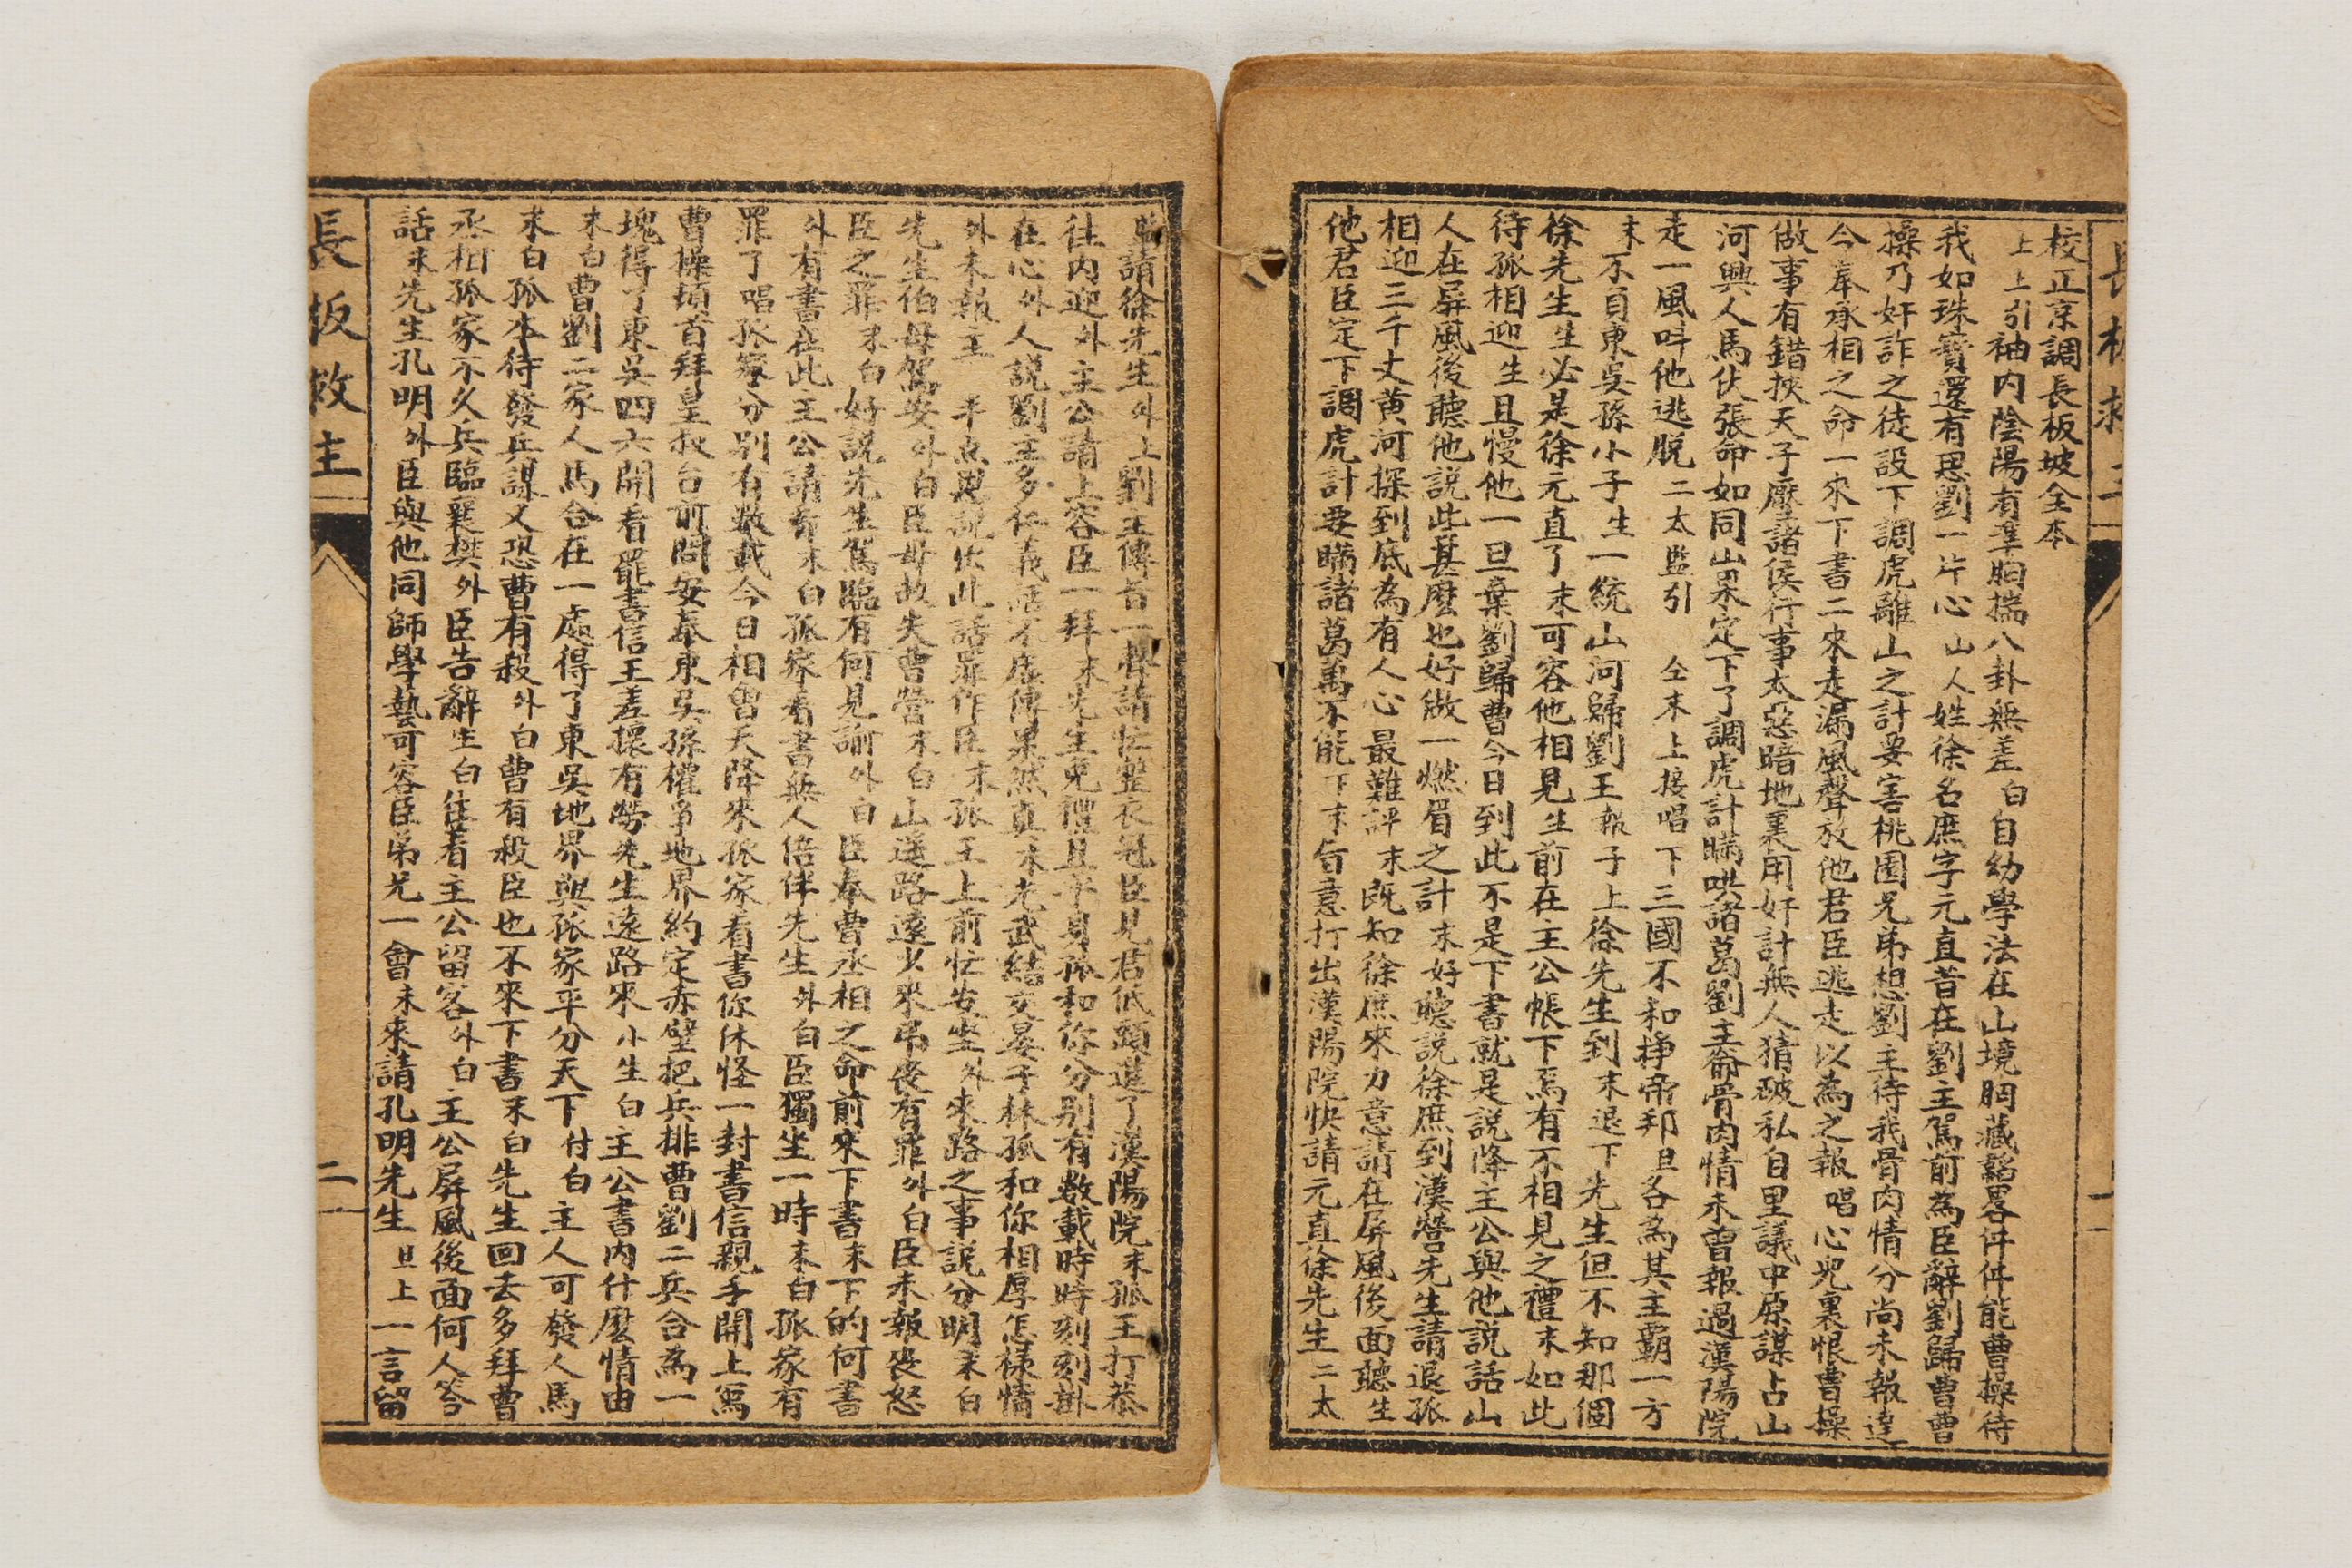 長板救主
一
校正京調長板坡全本
上上引袖内陰陽有準胸揣八卦無差白自幼學法在山境胸藏韜畧件件能曹操待
我如珠寶還有思劉一片心山人姓徐名庶字元直昔在劉主駕前為臣辭劉歸曹曹
操乃奸詐之徒設下調虎離山之計要害桃園兄弟想劉主待我骨肉情分尚未報達
今奉承相之命一來下書二來走漏風聲放他君臣逃走以為之報唱心兒裏恨曹操
做事有錯挾天子壓諸侯行事太惡暗地裏用奸計無人猜破私自里議中原謀占山
河興人馬伏張命如同山果定下了調虎計瞞哄諸葛劉主爺骨肉情未曾報過漢陽院
走一風呌他逃脱二太監引仝末上接唱下三國不和掙帝邦旦各為其主霸一方
末不自東吳孫小子生一統山河歸劉王報子上徐先生到末退下先生但不知那個
徐先生生必是徐元直了末可容他相見生前在主公帳下焉有不相見之禮末如此
待孤相迎生且慢他一旦棄劉歸曹今日到此不是下書就是説降主公與他説話山
人在屏風後聽他説此甚麽也好做一燃眉之計末好聽説徐庶到漢營先生請退孤
相迎三千丈黄河探到底為有人心最難評末既知徐庶來力意請在屏風後面聽生
他君臣定下調虎計要瞞諸葛萬不能下末旨意打出漢陽院快請元直徐先生二太
監請徐先生外上劉王傳旨一聲請忙整衣冠臣見君低頭進了漢陽院末孤王打恭
往内迎外主公請上容臣一拜末先生免禮且平身孤和你分别有数載時時刻刻掛
在心外人説劉主多仁義話不虚傳果然真末光武結交晏子林孤和你相厚怎様情
外未報主半点恩説什此話罪作臣末孤王上前忙安坐外來路之事説分明末白
先生伯母駕安外白臣母故失曹營末白山遥路遠少來弔喪有罪外白臣未報喪恕
臣之罪末白好説先生駕臨有何見諭外白臣奉曹丞相之命前來下書末下的何書
外有書在此王公請看末白孤家看書無人倍伴先生外白臣獨坐一時末白孤家有
罪了唱孤家分别有数載今日相會天降來孤家看書你休怪一封書信親手開上寫
曹操頓首拜皇叔台前問安泰東吳孫權争地界約定赤壁把兵排曹劉二兵合為一
塊得了東吳四六開看罷書信王差擐有勞先生遠路來小生白主公書内什麽情由
末白曹劉二家人馬合在一處得了東吳地界與孤家平分天下付白主人可發人馬
末白孤本待發兵謀又恐曹有殺外白曹有殺臣也不來下書末白先生回去多拜曹
丞相孤家不久兵臨襄樊外臣告辭生白住着主公留客外白王公屏風後面何人答
話末先生孔明外臣與他同師學藝可容臣弟兄一會末來請孔明先生旦上一言留
長板救主
二